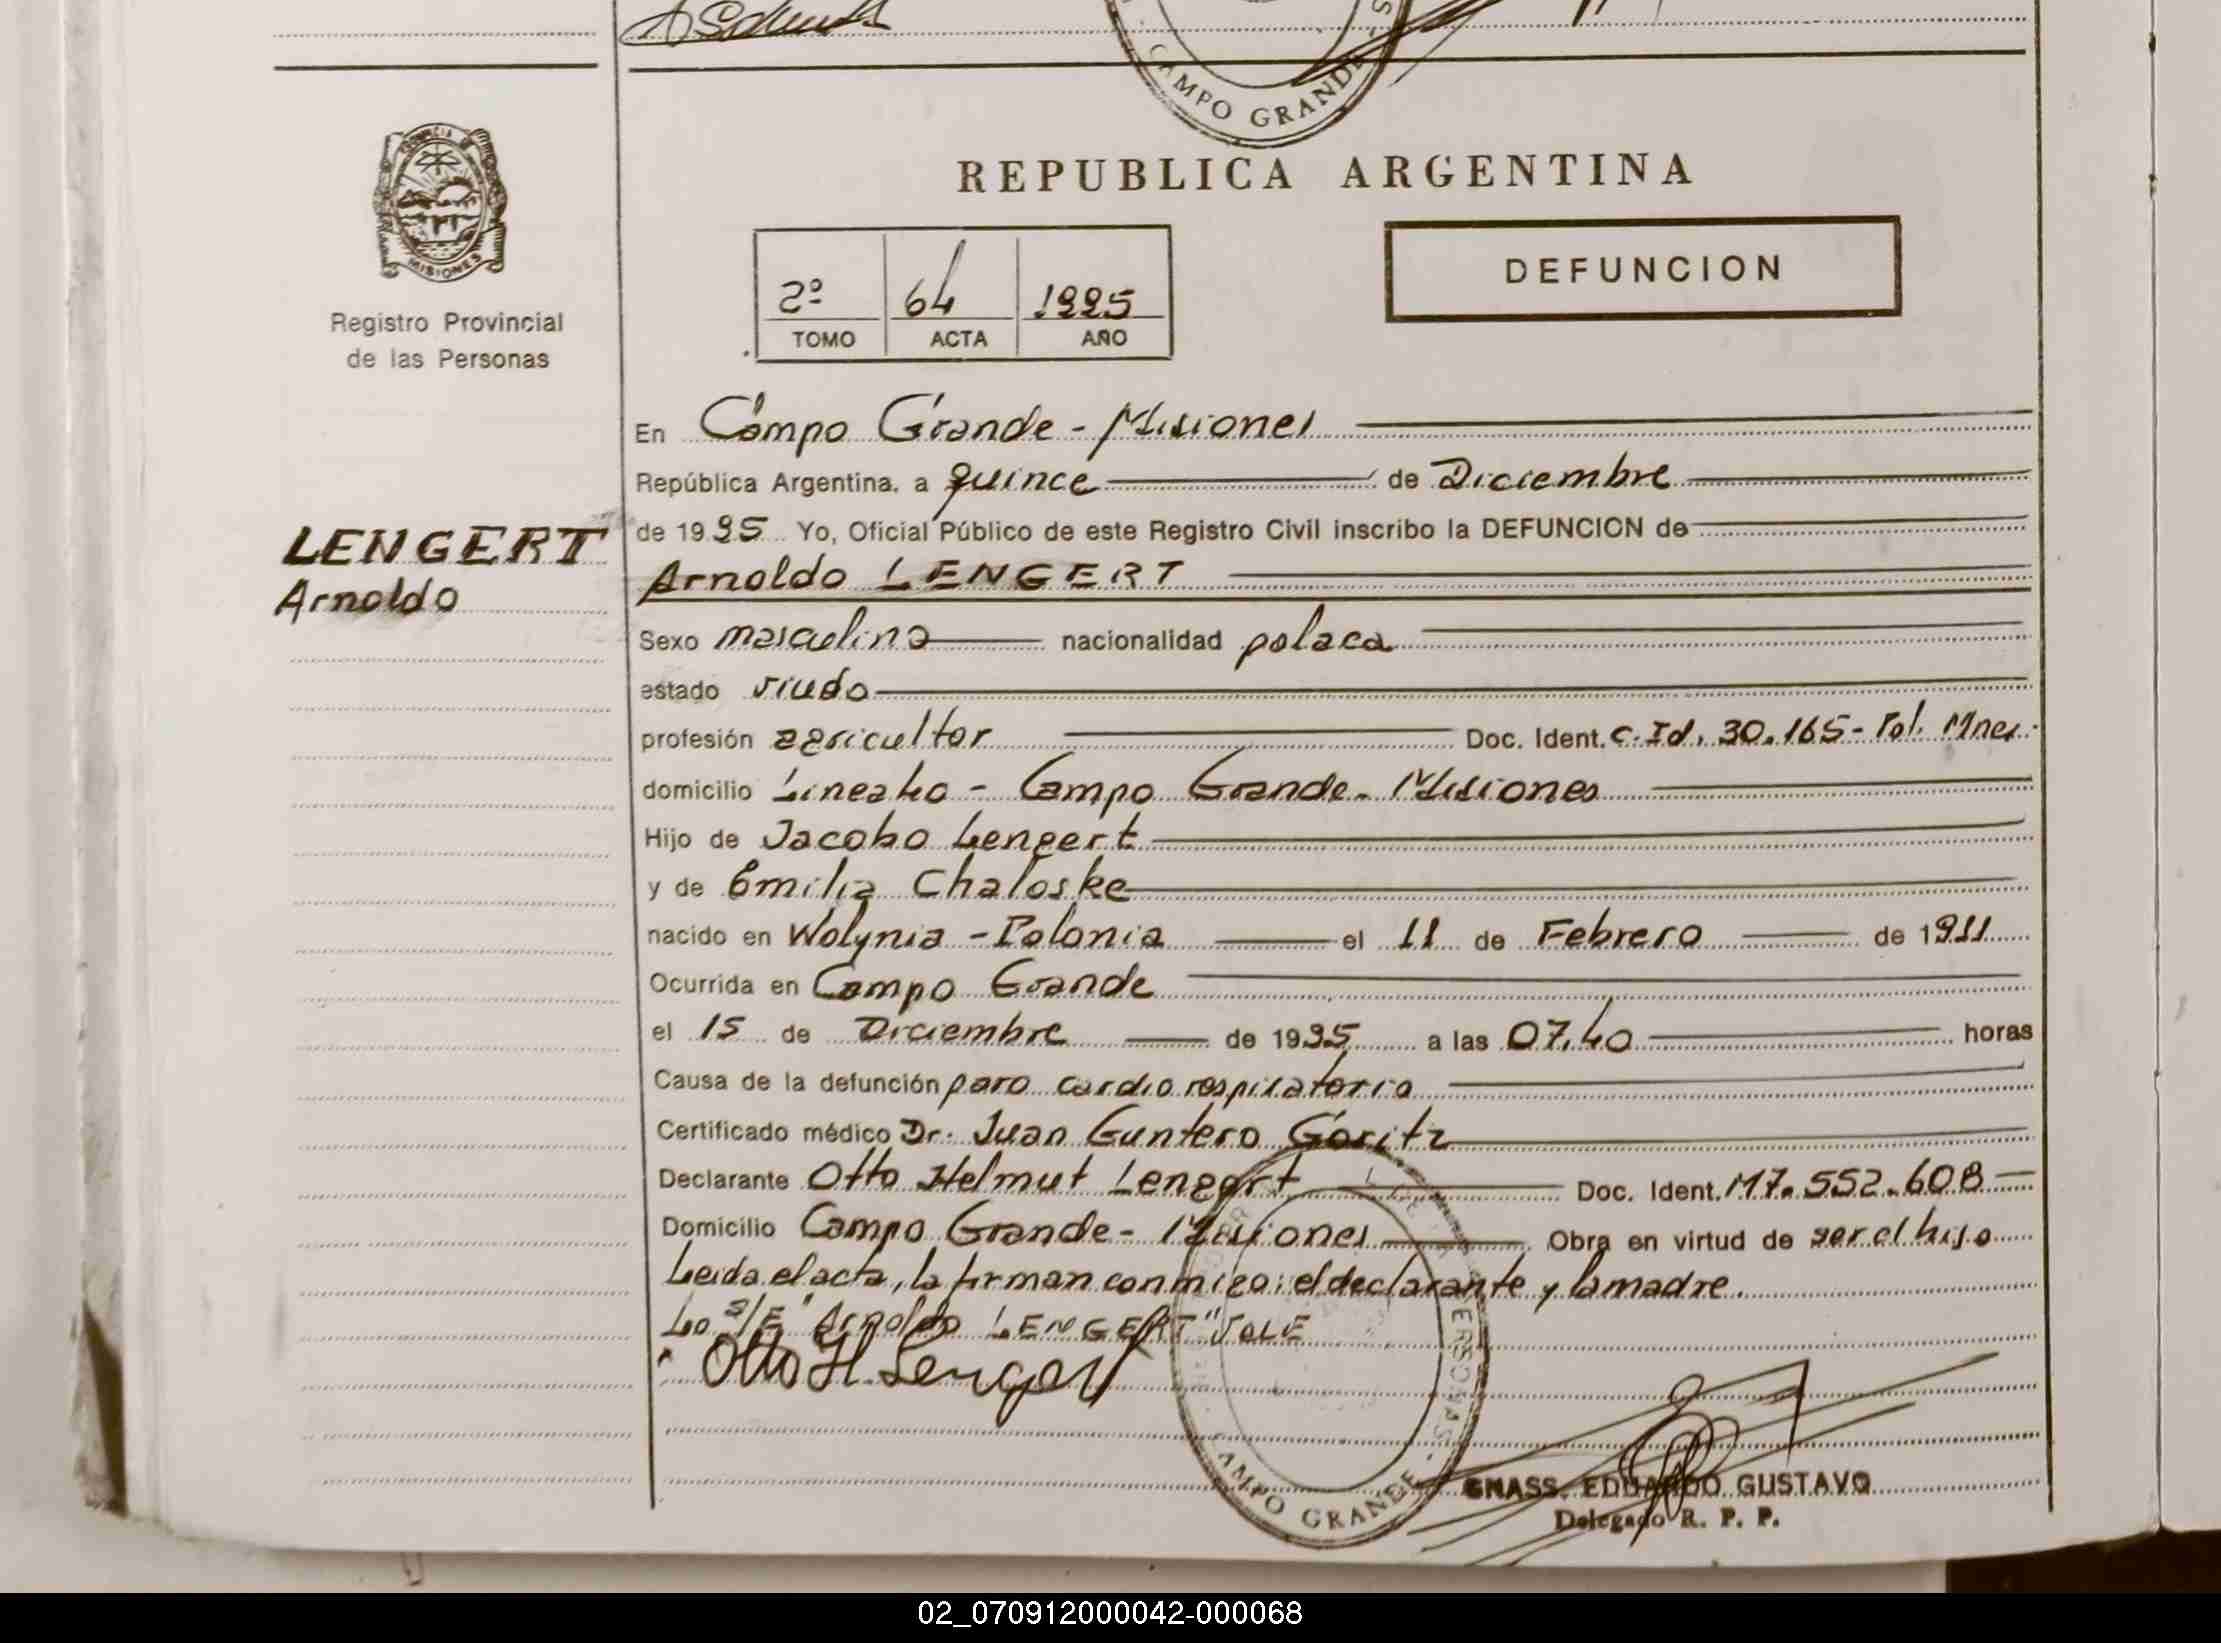 CAMPO GRANDE
REPUBLICA ARGENTINA
PROVINCIA DE
MISIONES
Registro Provincial
de las Personas
2º 64 1995
TOMO ACTA AÑO
DEFUNCION
En Campo Grande - Misiones
República Argentina, a quince de Diciembre
de 1995 Yo, Oficial Público de este Registro Civil inscribo la DEFUNCION de
LENGERT
Arnoldo
Arnoldo LENGERT
Sexo masculino nacionalidad polaca
estado viudo
profesión agricultor Doc. Ident. C. Id. 30.165 - Pol. Mnes.
domicilio Linea 40 - Campo Grande - Misiones
Hijo de Jacobo Lengert
y de Emilia Chaloske
nacido en Wolynia - Polonia el 11 de Febrero de 1911
Ocurrida en Campo Grande
el 15 de Diciembre de 1995 a las 07,40 horas
Causa de la defunción paro cardio respiratorio
Certificado médico Dr. Juan Guntero Göritz
Declarante Otto Helmut Lengert Doc. Ident. M7.552.608
Domicilio Campo Grande - Misiones Obra en virtud de ser el hijo
Leida el acta, la firman conmigo: el declarante y la madre.
Lo S/E "Arnoldo LENGERT" VALE
Otto H. Lengert
CAMPO GRANDE
GNASS, EDUARDO GUSTAVO
Delegado R. P. P.
02_070912000042-000068